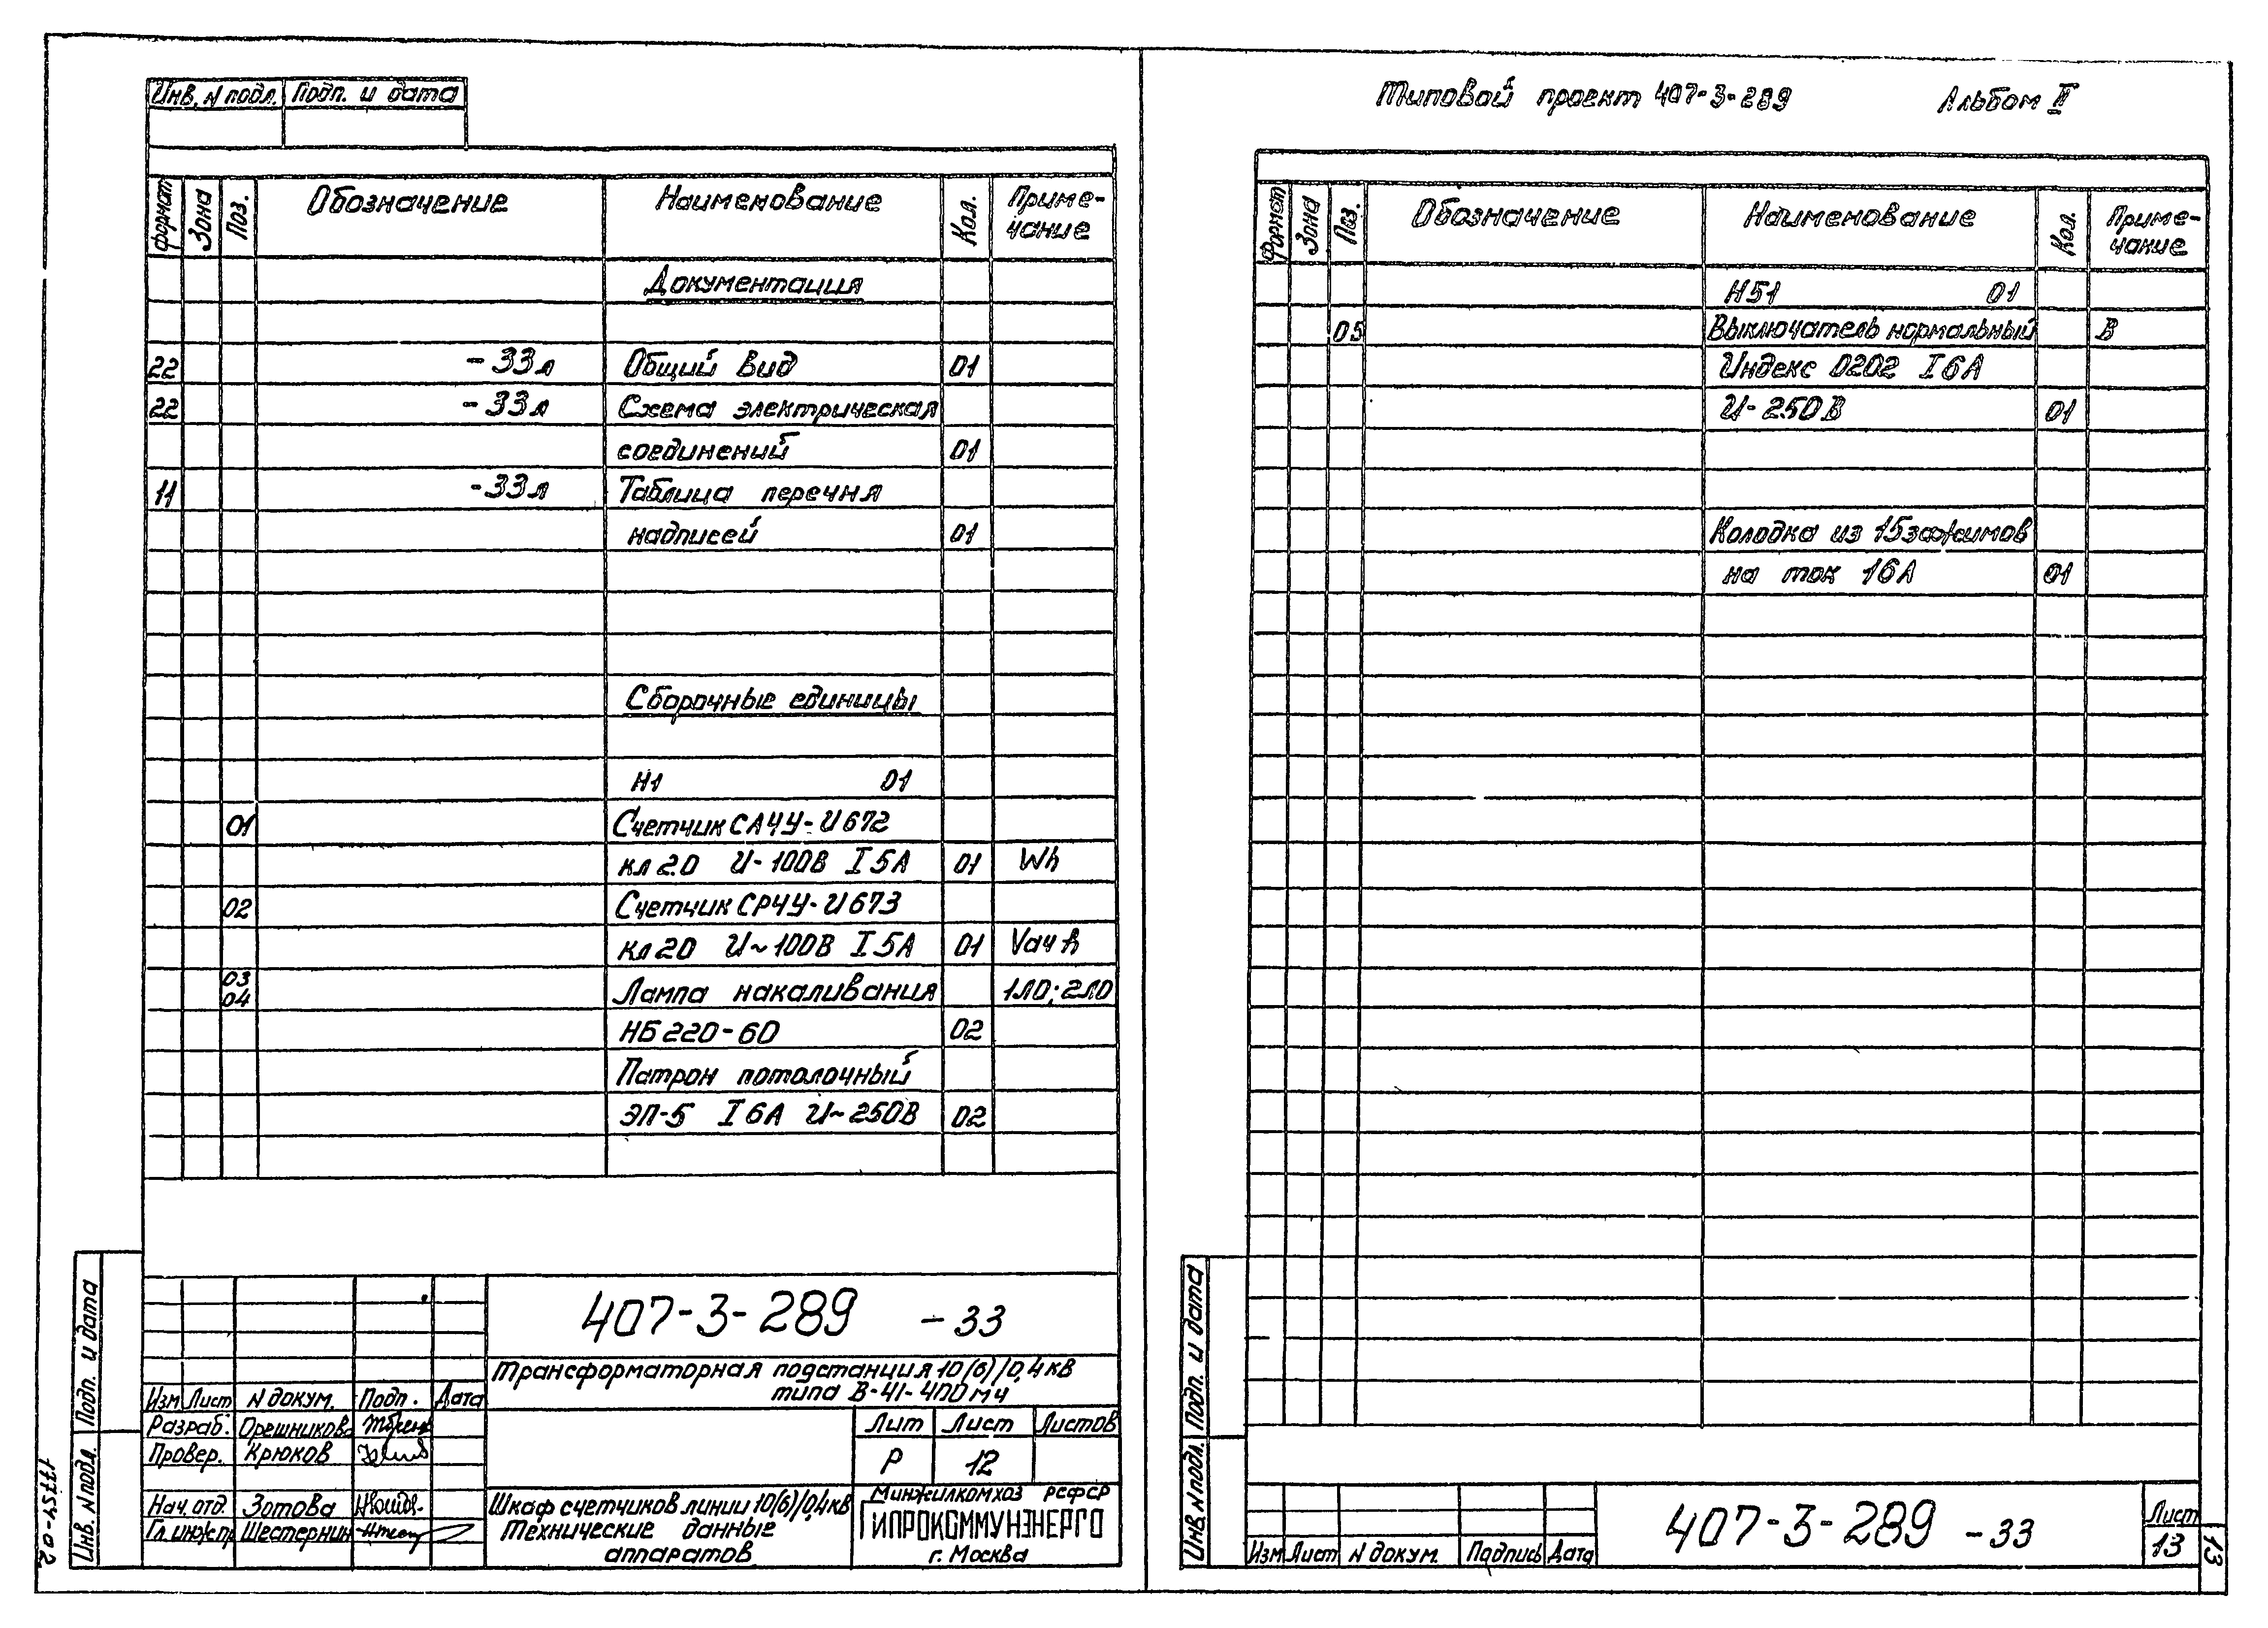 Инв. N подл. Подп. и дата
формат Зона Поз. Обозначение Наименование Кол. Приме-
чание
Документация
22 -33л Общий вид 01
22 -33л Схема электрическая
соединений 01
11 -33л Таблица перечня
надписей 01
Сборочные единицы
Н1 01
01 Счетчик СА4У-И672
кл 2.0 U-100В I 5А 01 Wh
02 Счетчик СР4У-И673
кл 20 U~100В I 5А 01 Vaч h
03
04 Лампа накаливания 1ЛО; 2ЛО
НБ 220-60 02
Патрон потолочный
ЭП-5 I 6А U~250В 02
407-3-289 -33
Трансформаторная подстанция 10(6)/0,4кв
типа В-41-400м4
Изм Лист N докум. Подп. Дата
Разраб. Орешникова
Провер. Крюков
Нач. отд. Зотова
Гл. инж. пр Шестернин
Лит Лист Листов
Р 12
Шкаф счетчиков линии 10(6)/0,4кв
Технические данные
аппаратов
Минжилкомхоз РСФСР
ГИПРОКОММУНЭНЕРГО
г. Москва
Инв. N подл. Подп. и дата
17754-02
Типовой проект 407-3-289 Альбом II
Формат Зона Поз. Обозначение Наименование Кол. Приме-
чание
Н51 01
05 Выключатель нормальный В
Индекс 0202 I 6А
U-250В 01
Колодка из 15 зажимов
на ток 16А 01
Инв. N подл. Подп. и дата
Изм Лист N докум. Подпись Дата
407-3-289 -33
Лист
13
13